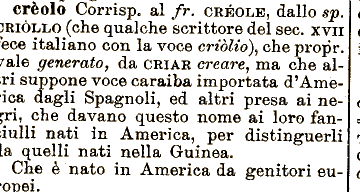 crèolo Corrisp. al fr. CRÉOLE, dallo sp.
CRIÒLLO (che qualche scrittore del sec. XVII
fece italiano con la voce criòlio), che propr.
vale generato, da CRIAR creare, ma che al-
tri suppone voce caraiba importata d'Ame-
rica dagli Spagnoli, ed altri presa ai ne-
gri, che davano questo nome ai loro fan-
ciulli nati in America, per distinguerli
da quelli nati nella Guinea.
Che è nato in America da genitori eu-
ropei.